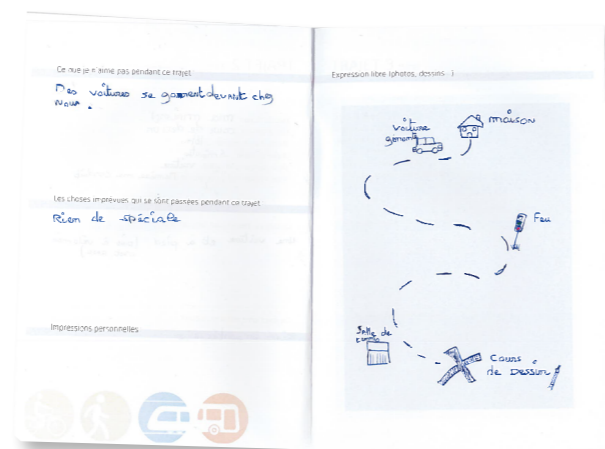 Ce que je n'aime pas pendant ce trajet
Des voitures se garent devant chez
nous.
Les choses imprévues qui se sont passées pendant ce trajet
Rien de spéciale
Impressions personnelles
Expression libre (photos, dessins...)
maison
voiture
Feu
Salle de
Cours
de Dessin